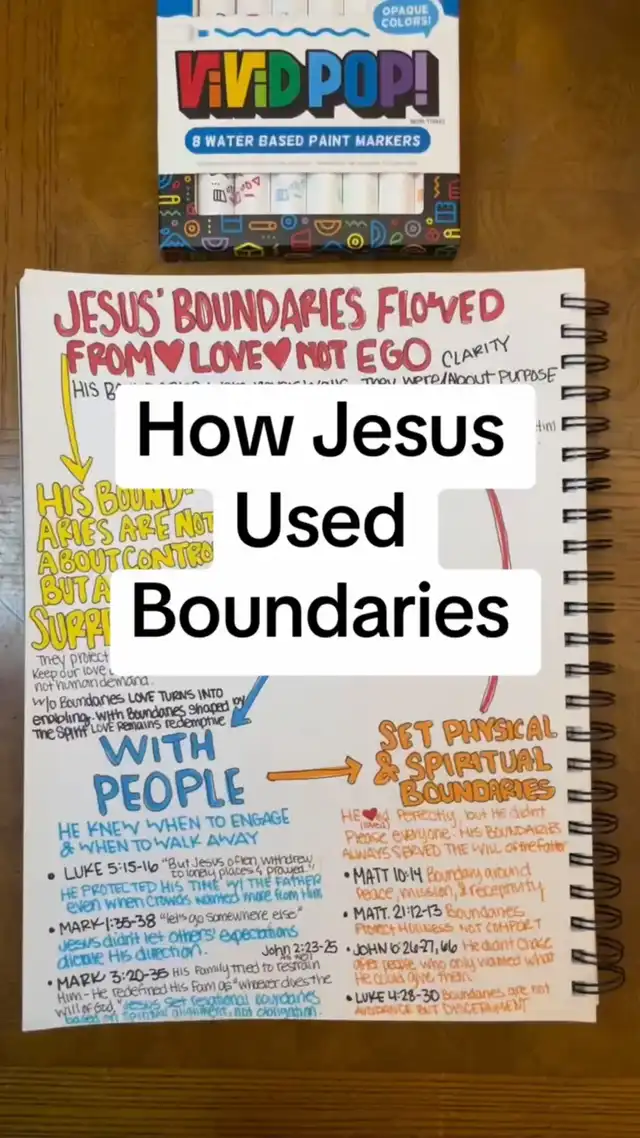 OPAQUE
COLORS!
ViViD POP!
8 WATER BASED PAINT MARKERS
JESUS' BOUNDARIES FLOWED
FROM♥LOVE♥NOT EGO CLARITY
HIS They were/About PURPOSE
Him
How Jesus
Used
Boundaries
HIS BOUND-
ARIES ARE NOT
ABOUT CONTRO
BUT A
SURR
They protect
keep our love
not human demand.
w/o Boundaries LOVE TURNS INTO
enabling. With Boundaries shaped by
The Spirit LOVE Remains redemptive
WITH
PEOPLE
HE KNEW WHEN TO ENGAGE
& WHEN TO WALK AWAY
• LUKE 5:15-16 "But Jesus often withdrew
to lonely places & prayed."
HE PROTECTED HIS TIME W/ THE FATHER
even when crowds wanted more from Him
• MARK 1:35-38 "let's go somewhere else"
Jesus didn't let others' expectations
dictate His direction.
John 2:23-25
• MARK 3:20-35 His Family tried to restrain
Him - He redefined His Fam as "whoever does the
will of God." Jesus set relational boundaries
based on spiritual alignment, not obligation.
SET PHYSICAL
& SPIRITUAL
BOUNDARIES
HE ♥ed Perfectly, but He didn't
(loved)
Please everyone. HIS BOUNDARIES
ALWAYS SERVED THE WILL of the father
• MATT 10:14 Boundary around
peace, mission, & receptivity
• MATT. 21:12-13 Boundaries
PROTECT HOLINESS NOT COMFORT
• JOHN 6:26-27, 66 He didn't chase
after people who only wanted what
He could give them.
• LUKE 4:28-30 Boundaries are not
AVOIDANCE BUT DISCERNMENT